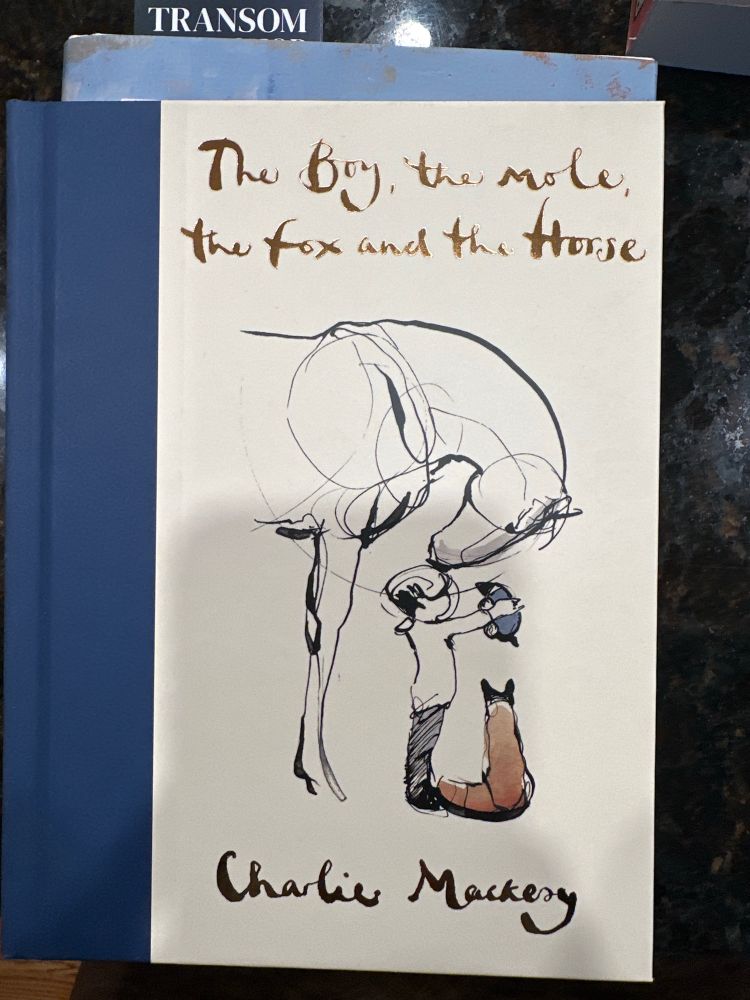 TRANSOM
The Boy, the mole,
the fox and the Horse
Charlie Mackesy